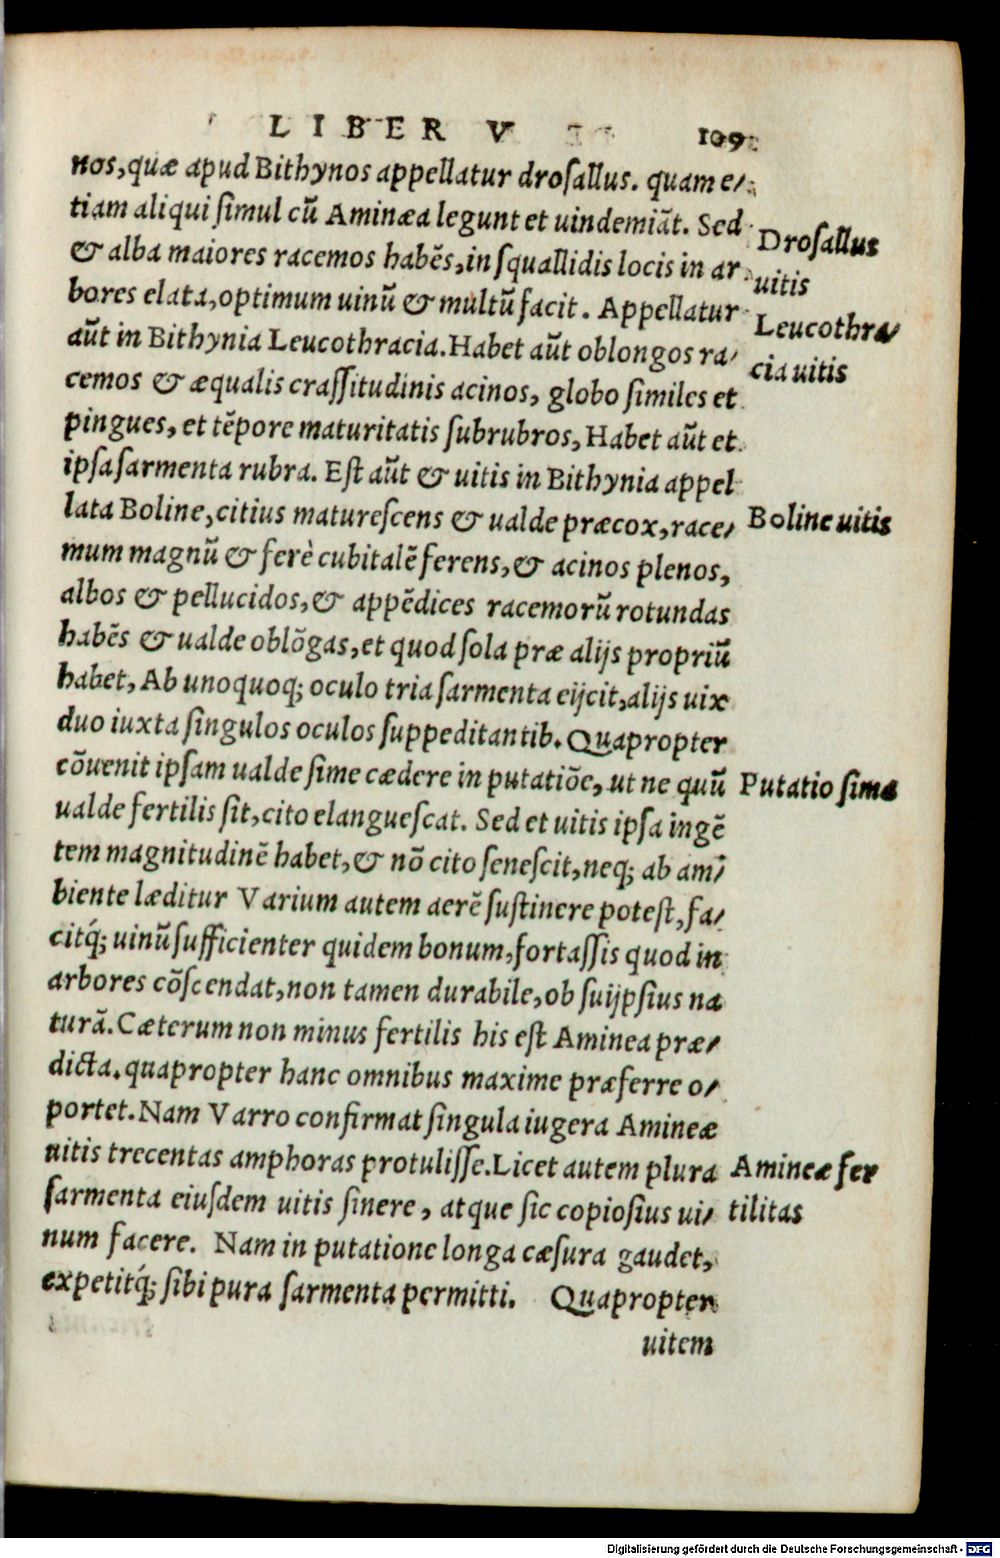 LIBER V 109
nos, quæ apud Bithynos appellatur drosallus. quam e-
tiam aliqui simul cũ Aminæa legunt et uindemiãt. Sed
& alba maiores racemos habẽs, in squallidis locis in ar
bores elata, optimum uinũ & multũ facit. Appellatur
aũt in Bithynia Leucothracia. Habet aũt oblongos ra-
cemos & æqualis crassitudinis acinos, globo similes et
pingues, et tẽpore maturitatis subrubros, Habet aũt et
ipsa sarmenta rubra. Est aũt & uitis in Bithynia appel
lata Boline, citius maturescens & ualde præcox, race-
mum magnũ & ferè cubitalẽ ferens, & acinos plenos,
albos & pellucidos, & appẽdices racemorũ rotundas
habẽs & ualde oblõgas, et quod sola præ alijs propriũ
habet, Ab unoquoq; oculo tria sarmenta eijcit, alijs uix
duo iuxta singulos oculos suppeditantib. Quapropter
cõuenit ipsam ualde sime cædere in putatiõe, ut ne quũ
ualde fertilis sit, cito elanguescat. Sed et uitis ipsa ingẽ
tem magnitudinẽ habet, & nõ cito senescit, neq; ab am-
biente læditur Varium autem aerẽ sustinere potest, fa-
citq́; uinũ sufficienter quidem bonum, fortassis quod in
arbores cõscendat, non tamen durabile, ob suijpsius na
turã. Cæterum non minus fertilis his est Aminea præ-
dicta. quapropter hanc omnibus maxime præferre o-
portet. Nam Varro confirmat singula iugera Amineæ
uitis trecentas amphoras protulisse. Licet autem plura
sarmenta eiusdem uitis sinere, atque sic copiosius ui-
num facere. Nam in putatione longa cæsura gaudet,
expetitq́; sibi pura sarmenta permitti. Quapropter
uitem
Drosallus
uitis
Leucothra-
cia uitis
Boline uitis
Putatio sima
Amineæ fer
tilitas
Digitalisierung gefördert durch die Deutsche Forschungsgemeinschaft - DFG